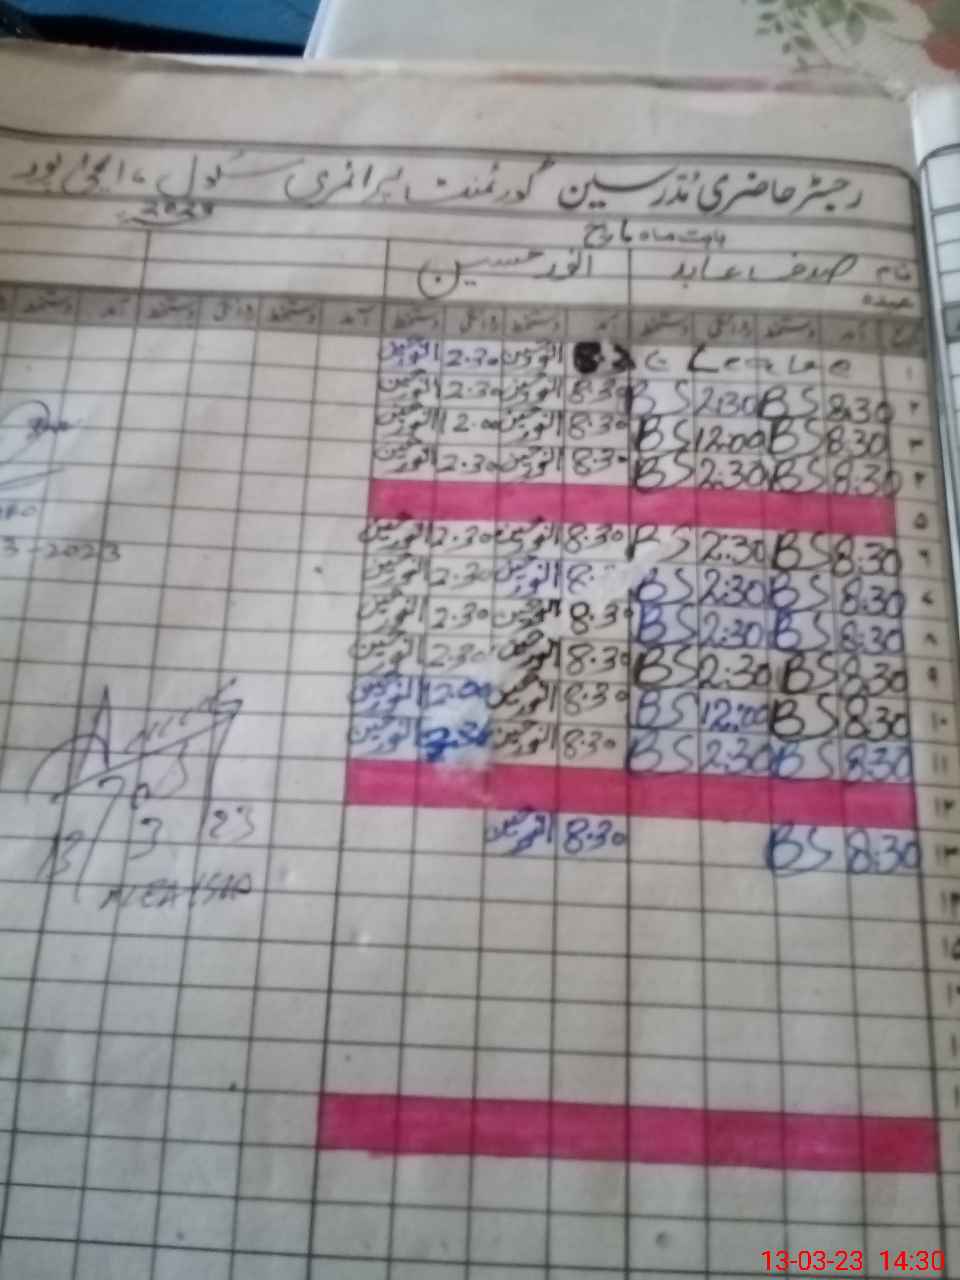 رجسٹر حاضری مدرسین گورنمنٹ پرائمری سکول
بابت ماہ مارچ
نام صدف عابد انور حسین
عہدہ
آمد دستخط روانگی دستخط آمد دستخط روانگی دستخط آمد دستخط روانگی دستخط آمد
۱ C Leave انور حسین 2.30 انور حسین
۲ 8:30 BS 2:30 BS 8.30 انور حسین 2.30 انور حسین
۳ 8:30 BS 12:00 BS 8.30 انور حسین 12.00 انور حسین
۴ 8:30 BS 2:30 BS 8.30 انور حسین 2.30 انور حسین
۵
۶ 8:30 BS 2:30 BS 8.30 انور حسین 2.30 انور حسین
۷ 8:30 BS 2:30 BS 8. انور حسین 2.30 انور حسین
۸ 8:30 BS 2:30 BS 8.30 انور حسین 2.30 انور حسین
۹ 8:30 BS 2:30 BS 8.30 انور حسین 2.30 انور حسین
۱۰ 8:30 BS 12:00 BS 8.30 انور حسین 12.00 انور حسین
۱۱ 8:30 BS 2:30 BS 8.30 انور حسین 2.30 انور حسین
۱۲
۱۳ 8:30 BS 8.30 انور حسین
۱۴
۱۵
3-2023
13/3/23
13-03-23 14:30